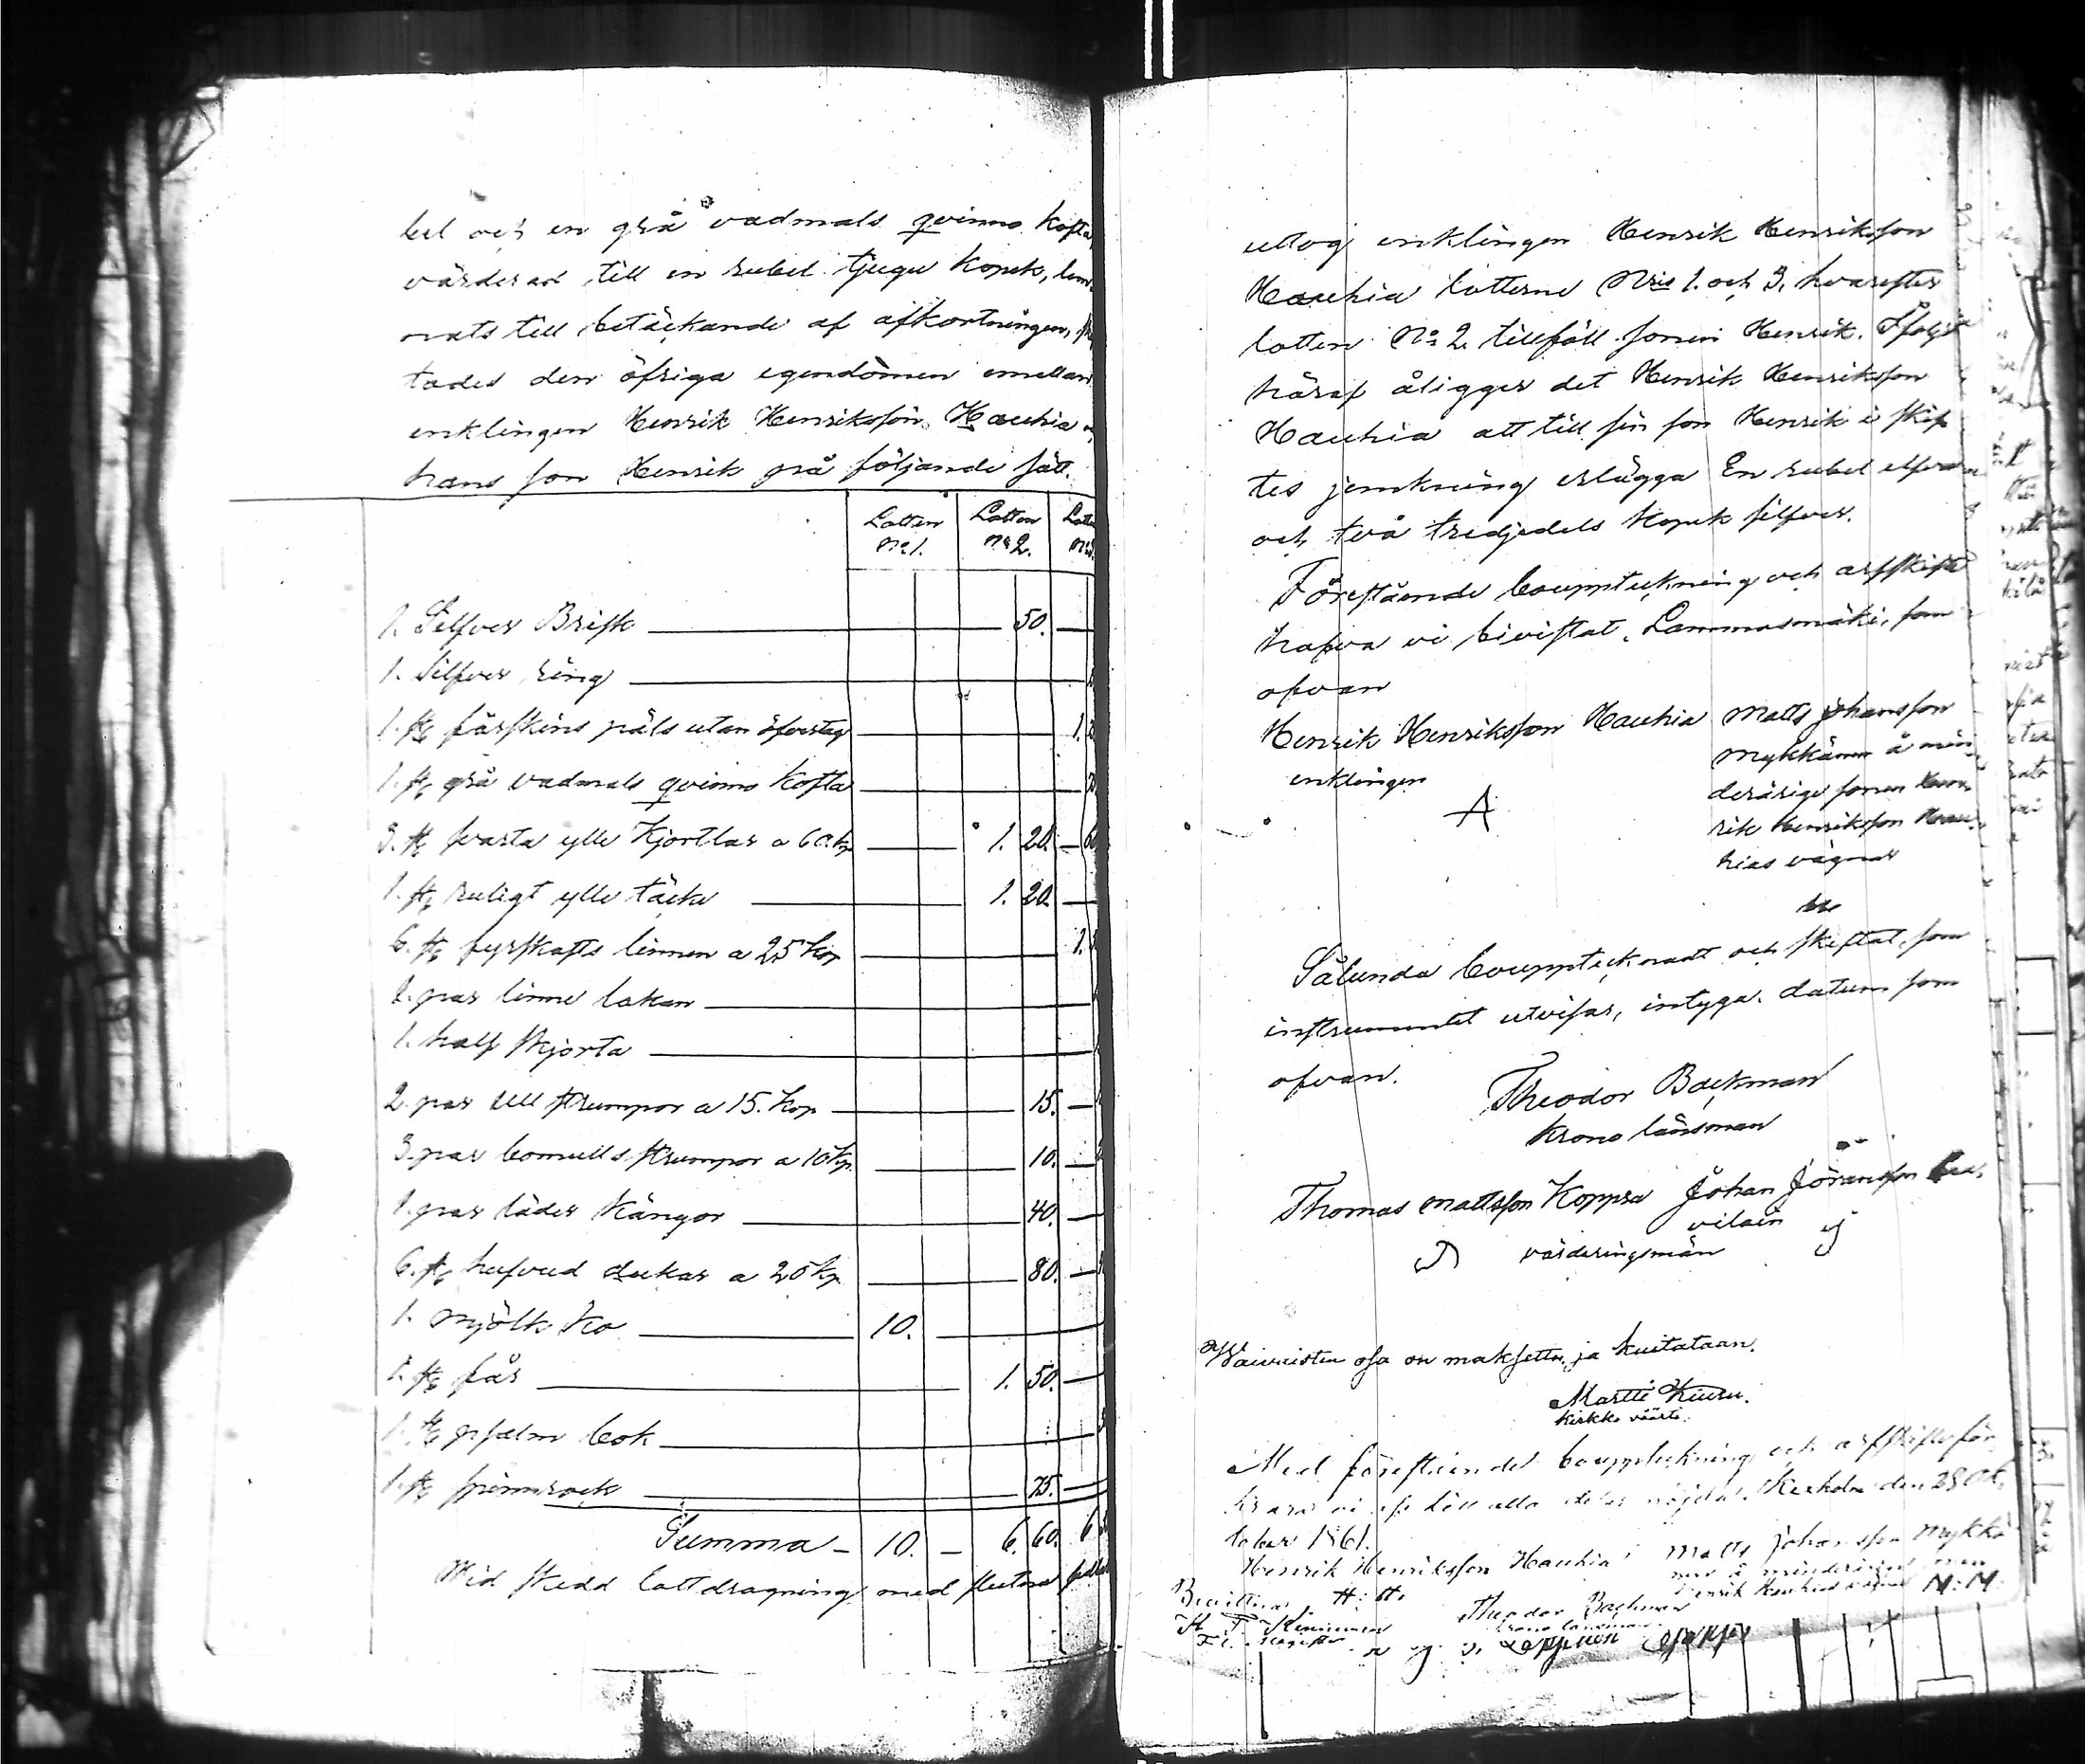 bel och en grå vadmals qvinno kofta
värderad till en rubel tjugu kopek, lem
nats till betäckande af afkortningen,
tades den öfriga egendomen emellan
enklingen Henrik Henriksson Hauhia
hans son Henrik på följande sätt.
Lotten No 1. Lotten No 2. Lotten
1. Silfver Brisk 50.
1. Silfver ring
1. st. fårskins päls utan öfvertyg 1.
1. st. grå vadmals qvinno kofta
3. st. svarta ylle kjortlar a 60. kp 1. 20.
1. st. ruligt ylle täcke 1. 20.
6. st. fyrskafts linnen a 25 kop 1.
1. par linne lakan
1. half skjorta
2. par ull strumpor a 15. kop 15.
3. par bomulls strumpor a 10 kp. 10.
1. par läder kängor 40.
6. st. hufvud dukar a 20 kp 80.
1. mjölk ko 10.
1. st. får 1. 50.
1. st. psalm bok
1. st. spinnrock 75.
Summa 10. 6. 60. 6
Wid skedd lottdragning med slutna
uttog enklingen Henrik Henriksson
Hauhia lotterne Nris 1. och 3. hvarefter
lotten No 2. tillföll sonen Henrik. Ifölje
häraf åligger det Henrik Henriksson
Hauhia att till sin son Henrik i skif
tes jemkning erlägga En rubel elfva
och två tredjedels kopek silfver.
Förestående bouppteckning och arfskifte
hafva vi bivistat, Lammasmäki, som
ofvan
Henrik Henriksson Hauhia Matts Johansson
enklingen Mykkänen å min
deårige sonen Hen
rik Henriksson Hau
hias vägnar
Sålunda bouppteknadt och skiftat, som
instrumentet utvisar, intyga. datum som
ofvan.
Theodor Backman
krono länsman
Thomas Mattsson Koppra Johan Jöransson
vilain
värderingsmän
Waivaisten osa on maksettu ja kuitataan.
Martti Kiuru.
kirkko väärti.
Med förestående bouppteckning och arfskifte för
klara vi oss till alla delar nöjda. Kexholm den 28 Ok
tober 1861.
Henrik Henriksson Hauhia Matts Johansson Mykkä
nen å minderårige
Henrik Hauhias vägnar M: M:
Bevittnar H: H.
Theodor Backman
krono länsman